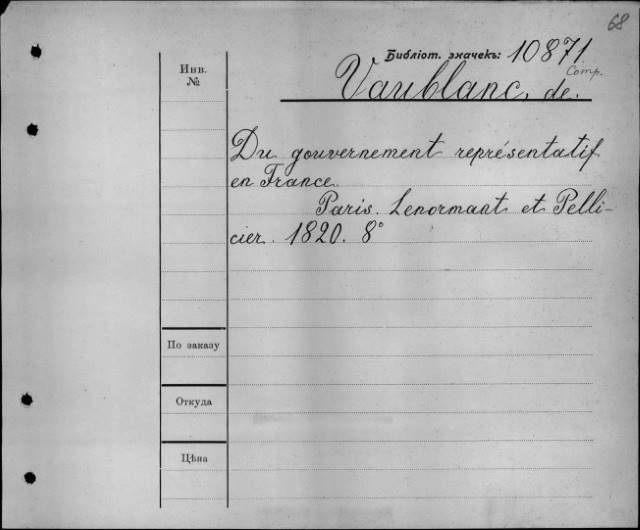 68
Библіот. значекъ: 10871
Comp.
Инв.
№
Vaublanc, de.
Du gouvernement représentatif
en France.
Paris. Lenormant et Pelli-
cier. 1820. 8°
По заказу
Откуда
Цѣна